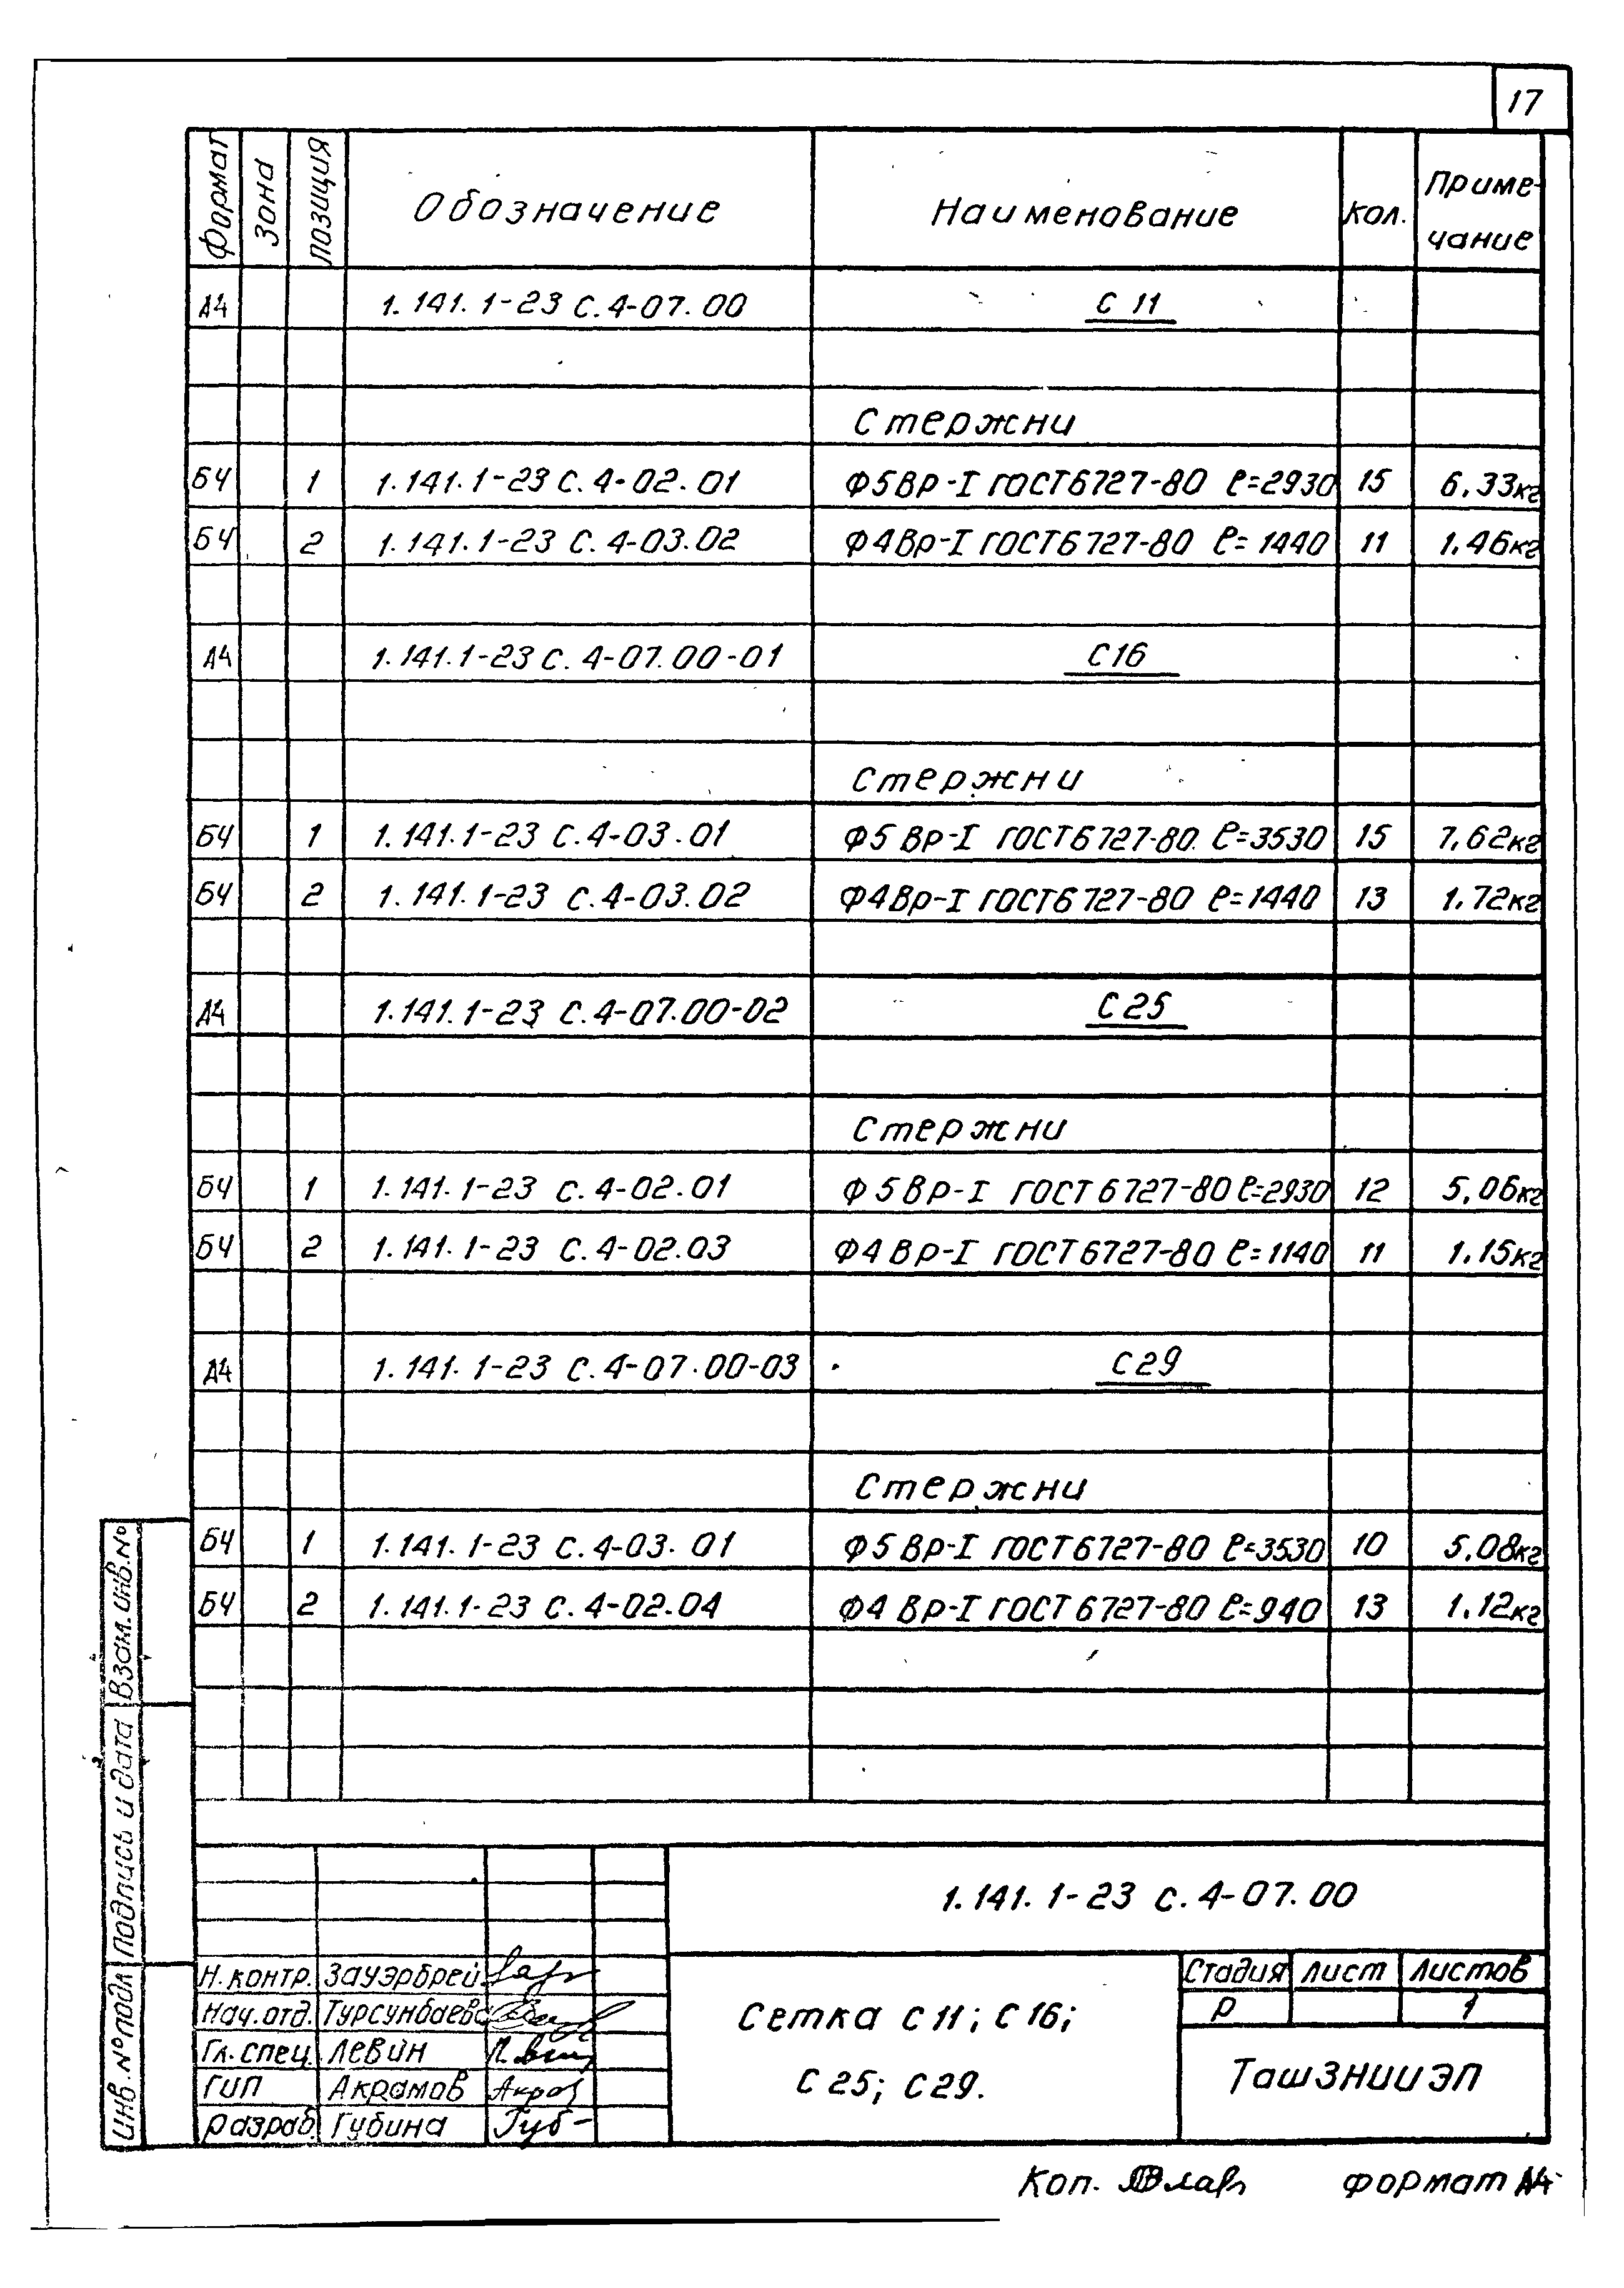 17
Формат Зона Позиция Обозначение Наименование Кол. Приме-
чание
А4 1.141.1-23 с.4-07.00 С 11
Стержни
БЧ 1 1.141.1-23 с.4-02.01 Ф5Вр-I ГОСТ6727-80 ℓ=2930 15 6.33кг
БЧ 2 1.141.1-23 с.4-03.02 Ф4Вр-I ГОСТ6727-80 ℓ=1440 11 1.46кг
А4 1.141.1-23 с.4-07.00-01 С16
Стержни
БЧ 1 1.141.1-23 с.4-03.01 Ф5 Вр-I ГОСТ6727-80 ℓ=3530 15 7.62кг
БЧ 2 1.141.1-23 с.4-03.02 Ф4Вр-I ГОСТ6727-80 ℓ=1440 13 1.72кг
А4 1.141.1-23 с.4-07.00-02 С25
Стержни
БЧ 1 1.141.1-23 с.4-02.01 Ф5Вр-I ГОСТ6727-80 ℓ=2930 12 5.06кг
БЧ 2 1.141.1-23 с.4-02.03 Ф4Вр-I ГОСТ6727-80 ℓ=1140 11 1.15кг
А4 1.141.1-23 с.4-07.00-03 С29
Стержни
БЧ 1 1.141.1-23 с.4-03.01 Ф5 Вр-I ГОСТ6727-80 ℓ=3530 10 5.08кг
БЧ 2 1.141.1-23 с.4-02.04 Ф4 Вр-I ГОСТ6727-80 ℓ=940 13 1.12кг
Взам.инв.№
Подпись и дата
Инв.№ подл
1.141.1-23 с.4-07.00
Н.контр. Зауэрбрей
Нач.отд. Турсунбаева
Гл.спец. Левин
ГИП Акрамов
Разраб. Губина
Сетка С11; С16;
С25; С29.
Стадия Лист Листов
Р 1
ТашЗНИИЭП
Коп. Формат А4